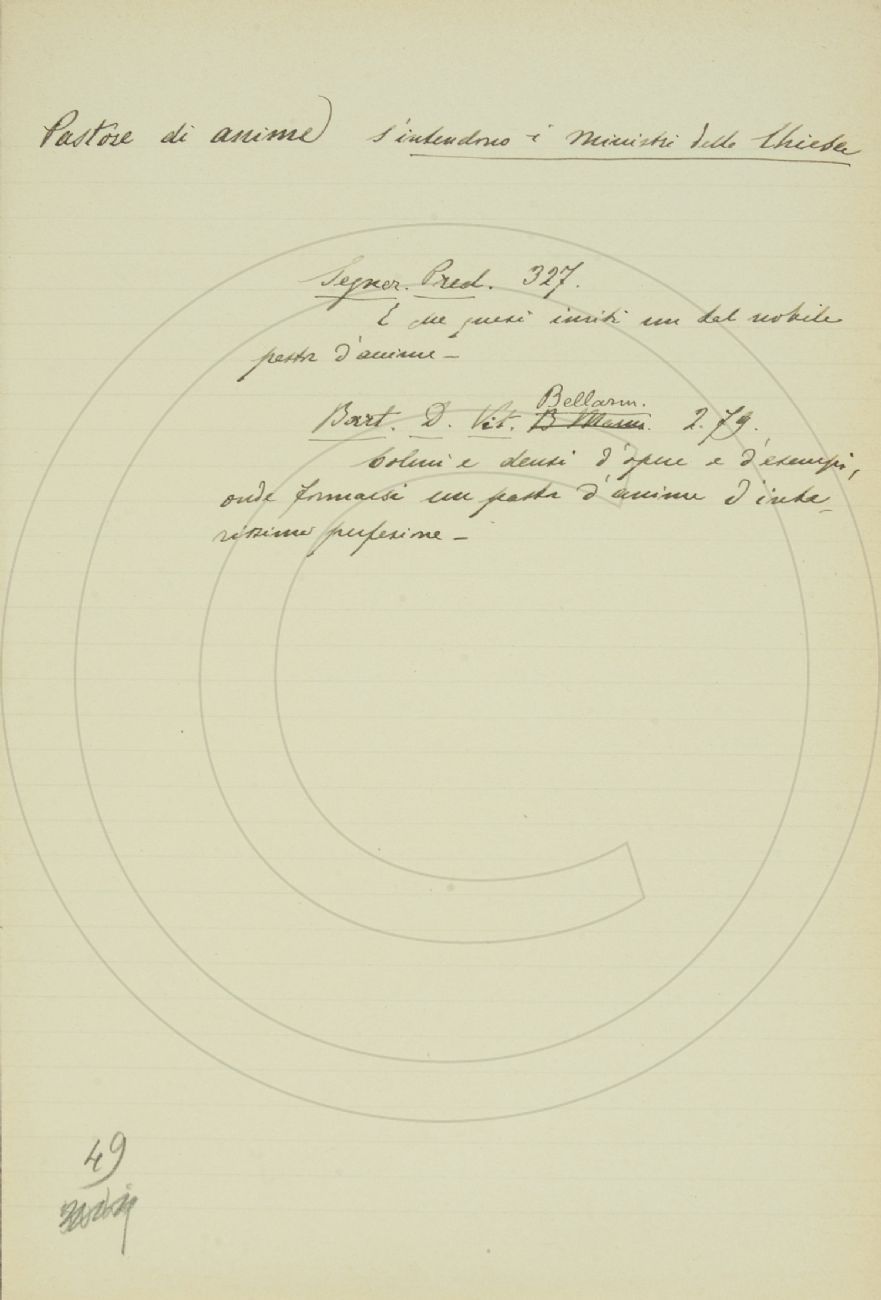 Pastore di anime) s'intendono i Ministri della Chiesa
Segner. Pred. 327.
E quasi inviti un tal nobile
pastor d'anime –
Bellarm.
Bart. D. Vit. B 2. 79.
e d'opere e d'esempi,
onde formarsi un pastor d'anime d'inte-
rissima perfezione –
49